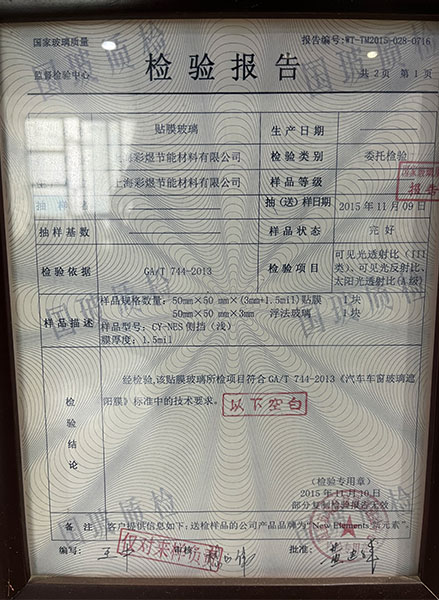 国家玻璃质量
监督检验中心
检验报告
报告编号:WT-TM2015-028-0716
共 2 页 第 1 页
贴膜玻璃
生产日期
上海彩煜节能材料有限公司
检验类别
委托检验
上海彩煜节能材料有限公司
样品等级
抽样
抽(送)样日期
2015年11月09日
抽样基数
样品状态
完好
检验依据
GA/T 744-2013
检验项目
可见光透射比(III
类)、可见光反射比、
太阳光透射比(A级)
样品描述
样品规格数量:50mm×50 mm×(3mm+1.5mil)贴膜 1块
50mm×50 mm×3mm 浮法玻璃 1块
样品型号:CY-NES侧挡(浅)
膜厚度:1.5mil
检验结论
经检验,该贴膜玻璃所检项目符合GA/T 744-2013《汽车车窗玻璃遮
阳膜》标准中的技术要求。
以下空白
(检验专用章)
2015年11月10日
部分复制检验报告无效
备注
客户提供信息如下:送检样品的公司产品品牌为“New Elements 新元素”。
编写:
审核:
批准:
仅对来样负责
报告
国玻质检
国玻质检
国玻质检
国玻质检
国玻质检